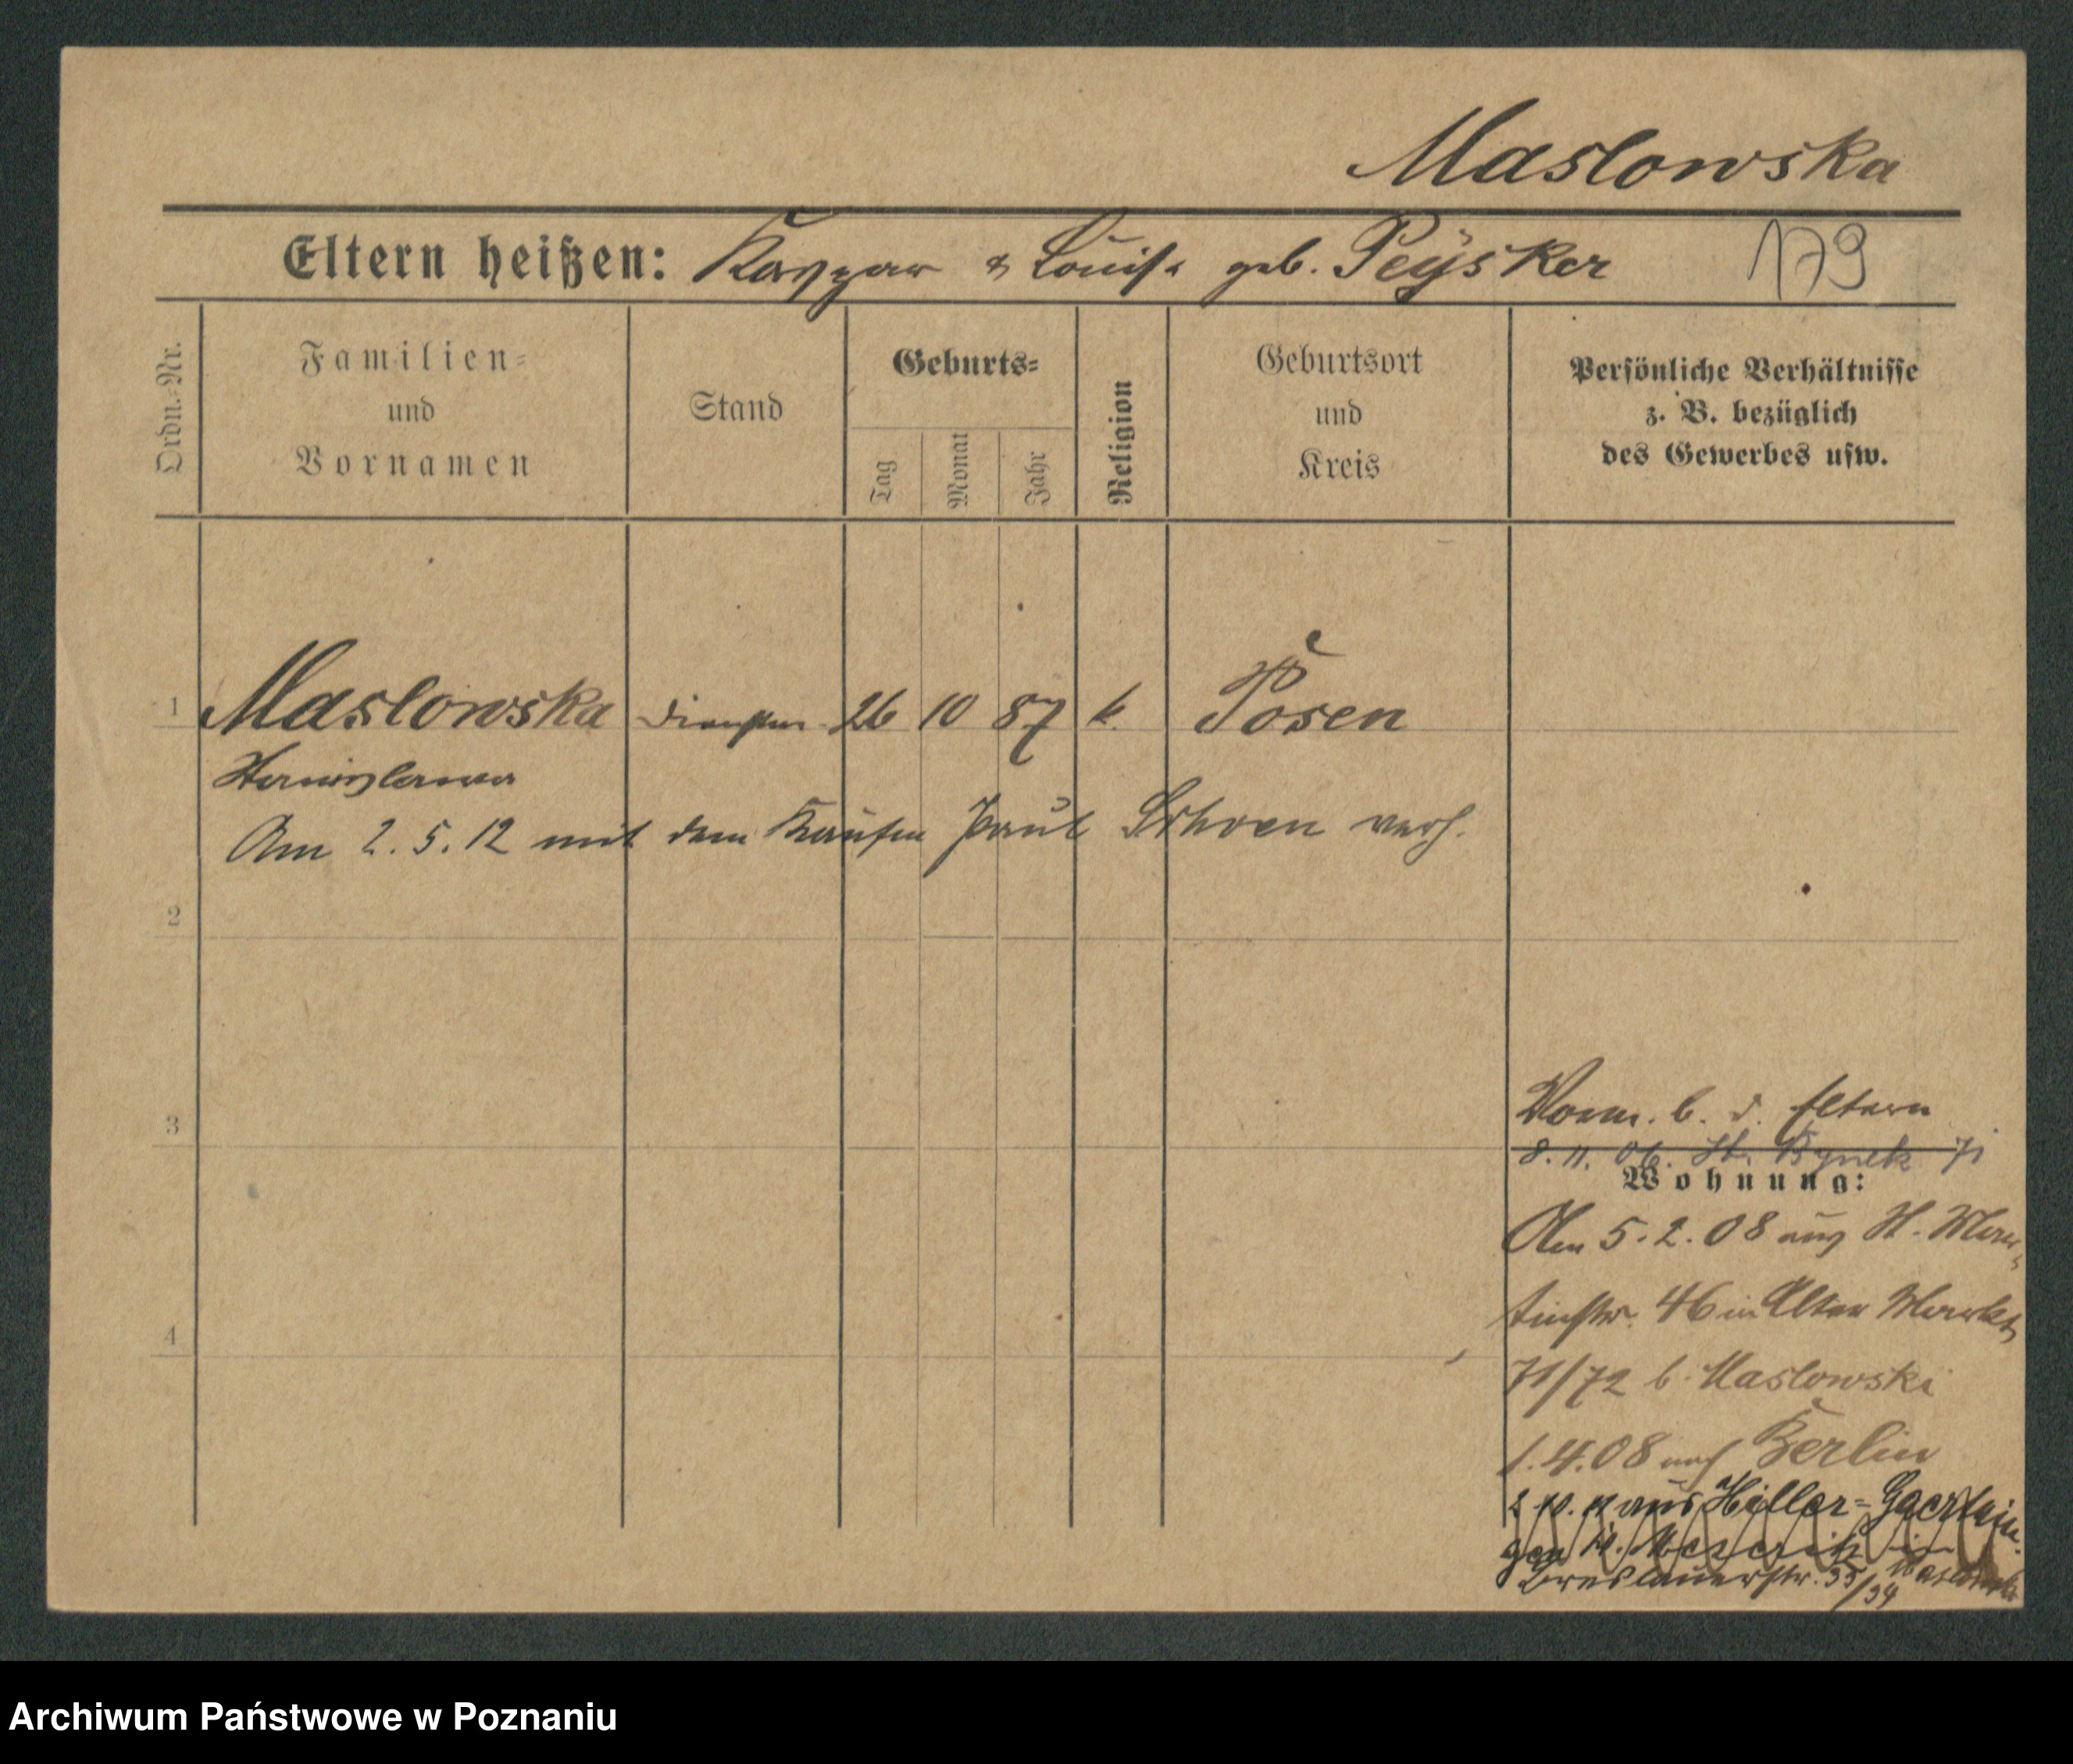 Maslowska
Eltern heißen: Kaspar & Louise geb. Peÿsker 179
Ordn.-Nr.
Familien-
und
Vornamen
Stand
Geburts-
Tag
Monat
Jahr
Religion
Geburtsort
und
Kreis
Persönliche Verhältnisse
z. B. bezüglich
des Gewerbes usw.
1 Maslowska 26 10 87 k. Posen
Am 2. 5. 12 mit dem Kaufm Paul Schoen verh.
2
3
Vorm. b. d. Eltern
8. 11. 06. St. Rynek 71
Wohnung:
Am 5. 2. 08 aus St. Mar-
tinstr. 46 in Alter Markt
71/72 b. Maslowski
4
1. 4. 08 nach Berlin
aus Hiller-Gaertrin-
gen
Breslauerstr. 33/34
Archiwum Państwowe w Poznaniu